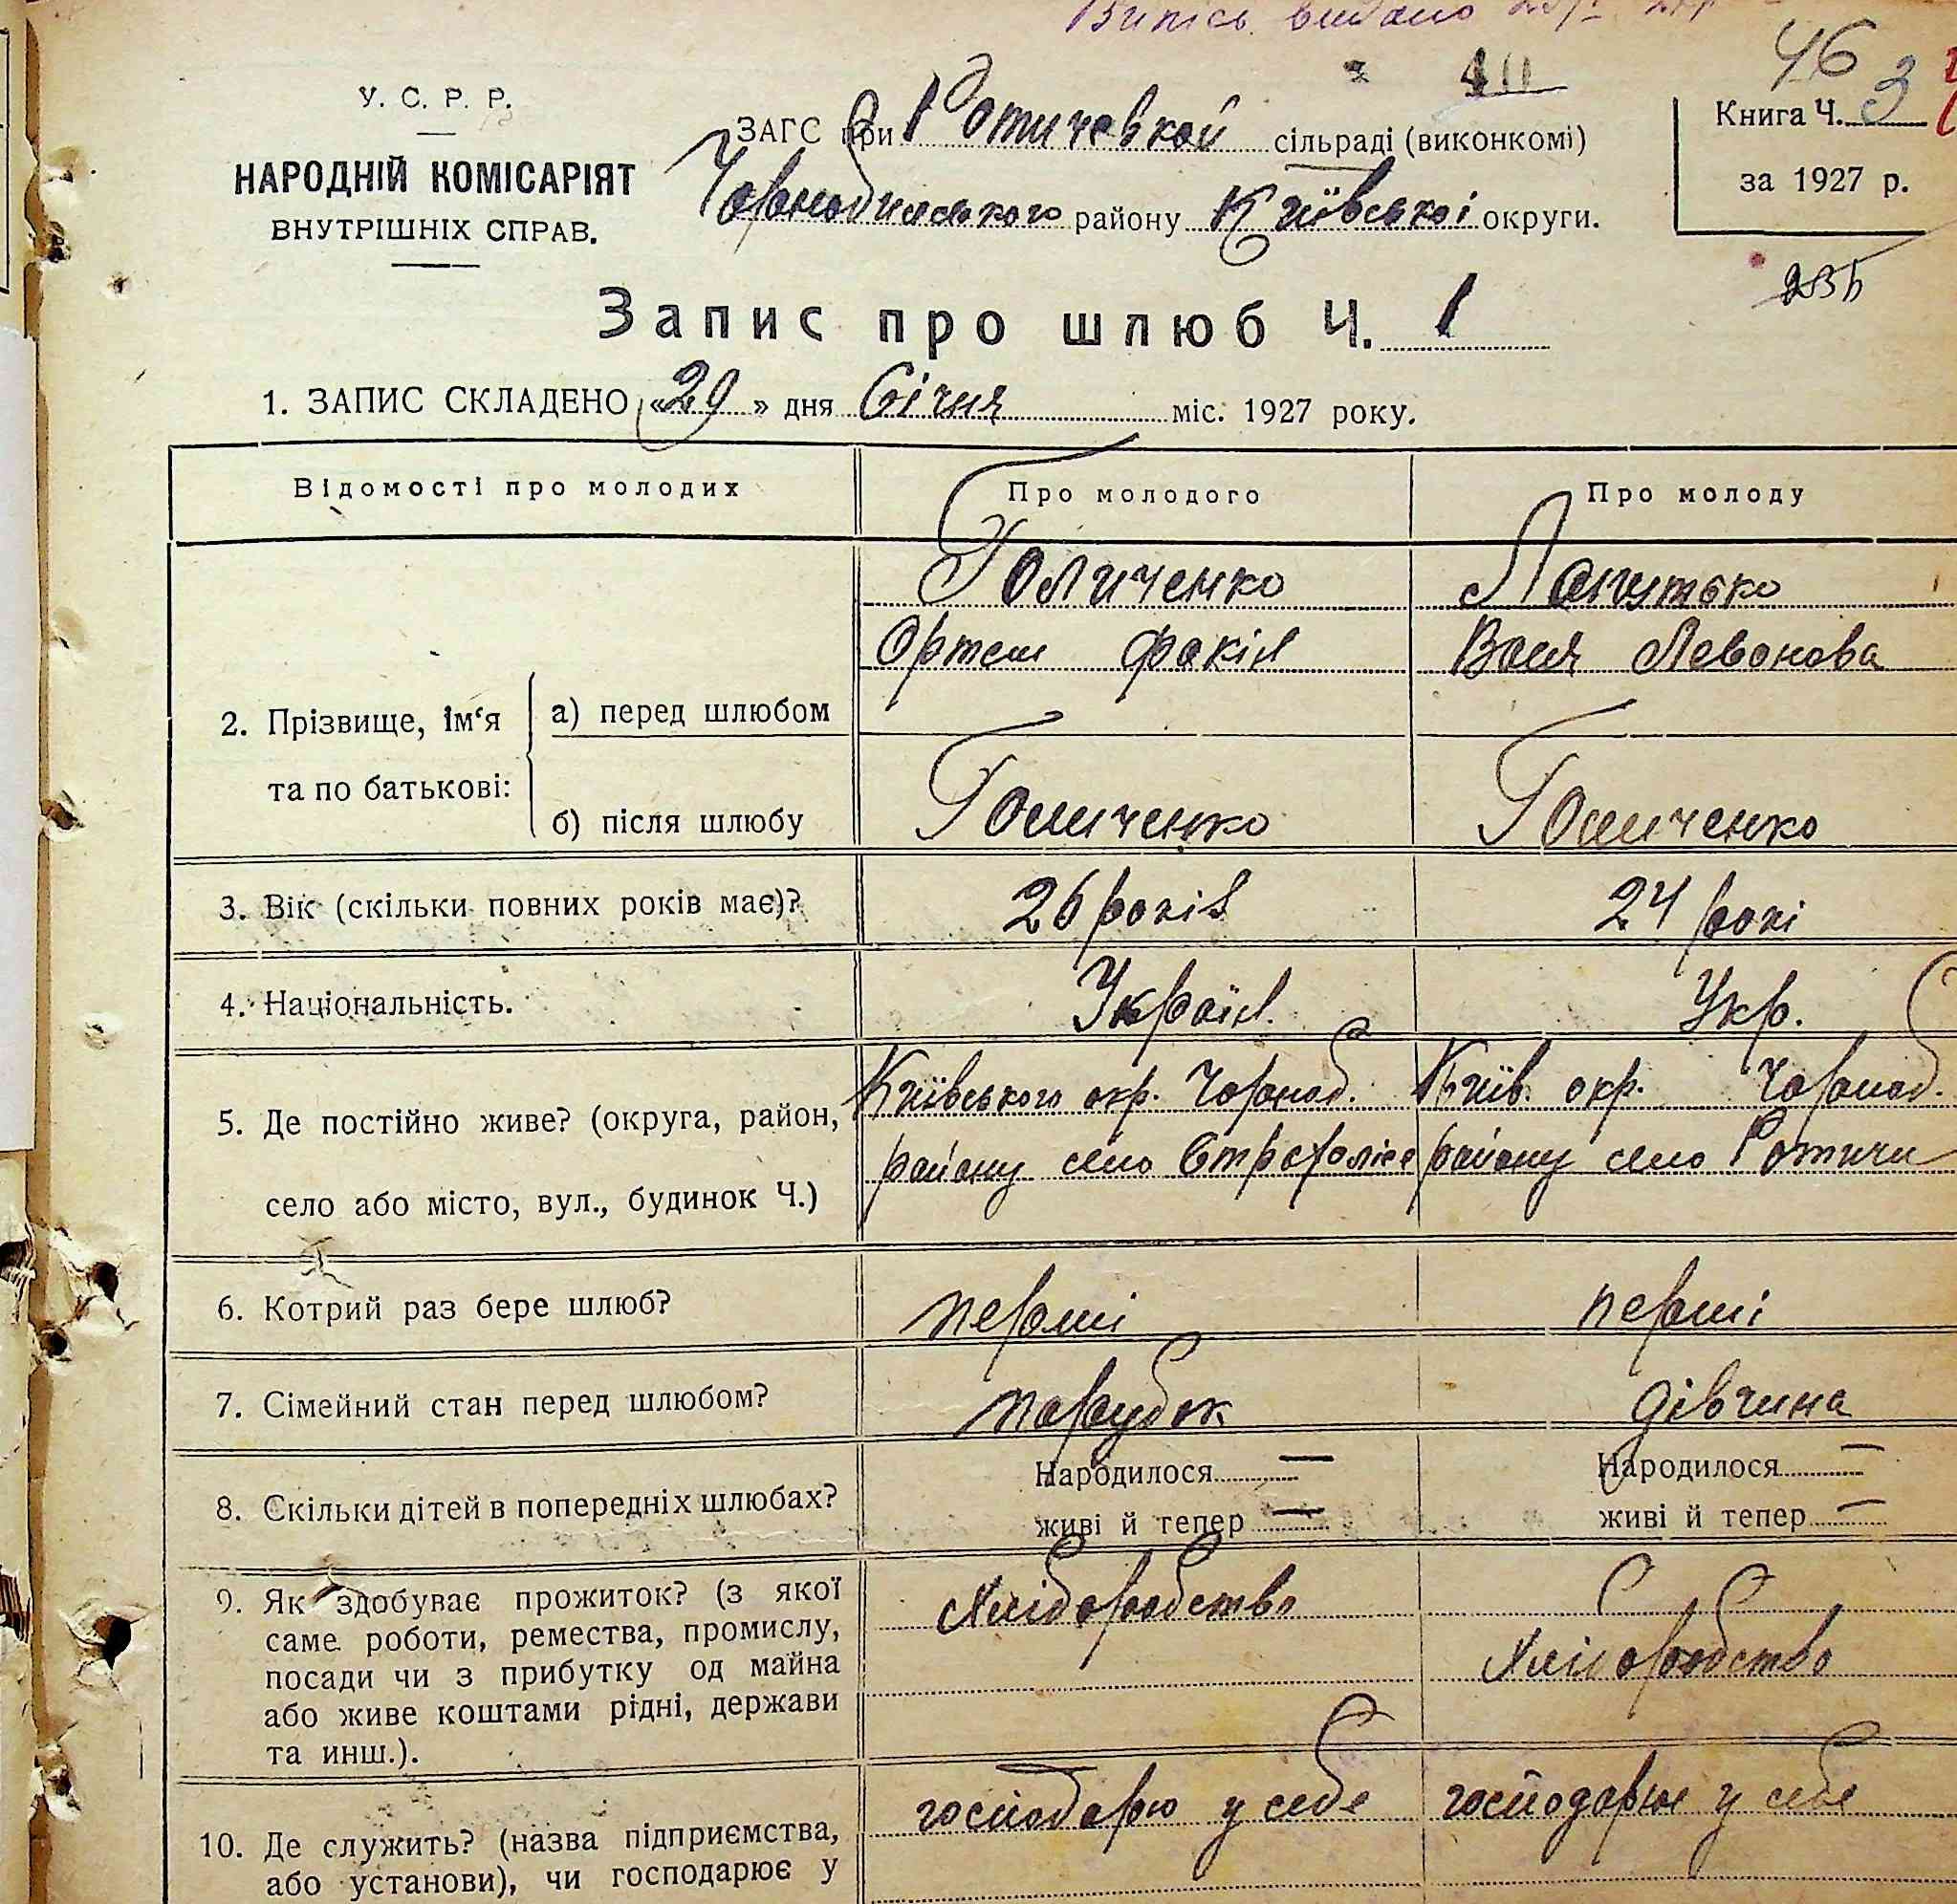 Випись видано
46
У. С. Р. Р.
НАРОДНІЙ КОМІСАРІЯТ
ВНУТРІШНІХ СПРАВ.
ЗАГС при Ротичевкой сільраді (виконкомі)
Чорнобильського району Київської округи.
Книга Ч. 3
за 1927 р.
Запис про шлюб Ч. 1
1. ЗАПИС СКЛАДЕНО «29» дня Січня міс. 1927 року.
Відомості про молодих
Про молодого
Про молоду
2. Прізвище, ім‘я та по батькові:
а) перед шлюбом
Голиченко
Ортем Фокіл
Лопутько
Воля Левонова
б) після шлюбу
Голиченко
Голиченко
3. Вік (скільки повних років має)?
26 років
24 рокі
4. Національність.
Україн.
Укр.
5. Де постійно живе? (округа, район,
село або місто, вул., будинок Ч.)
Київського окр. Чорноб.
району село Страхолісе
Київ. окр. Чорноб.
району село Ротичи
6. Котрий раз бере шлюб?
перші
перші
7. Сімейний стан перед шлюбом?
парубок
дівчина
8. Скільки дітей в попередніх шлюбах?
Народилося —
живі й тепер —
Народилося —
живі й тепер —
9. Як здобуває прожиток? (з якої
саме роботи, ремества, промислу,
посади чи з прибутку од майна
або живе коштами рідні, держави
та инш.).
Хліборобство
Хліборобство
10. Де служить? (назва підприємства,
або установи), чи господарює у
господарю у себе
господарює у себе